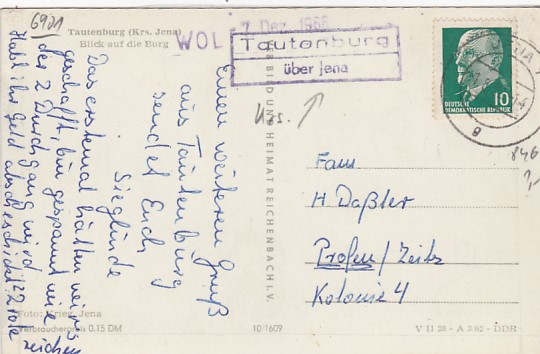 6901
Tautenburg (Krs. Jena)
Blick auf die Burg
WOL
7. Dez. 1966
Tautenburg
über Jena
10
DEUTSCHE
DEMOKRATISCHE REPUBLIK
Einen weiteren Gruß
aus Tautenburg
sendet Euch
Sieglinde
Das erstemal hätten wir's
geschafft, bin gespannt wie
der 2. Durchgang wird.
Habt ihr Geld abgeschickt? 22 rote
zeichen
Fam
H Daßler
Profen/Zeitz
Kolonie 4
BILD UND HEIMAT REICHENBACH I. V.
Foto: Krieg, Jena
Verbraucherpreis 0.15 DM
10/1609
V 11 28 - A 3/62 - DDR
846